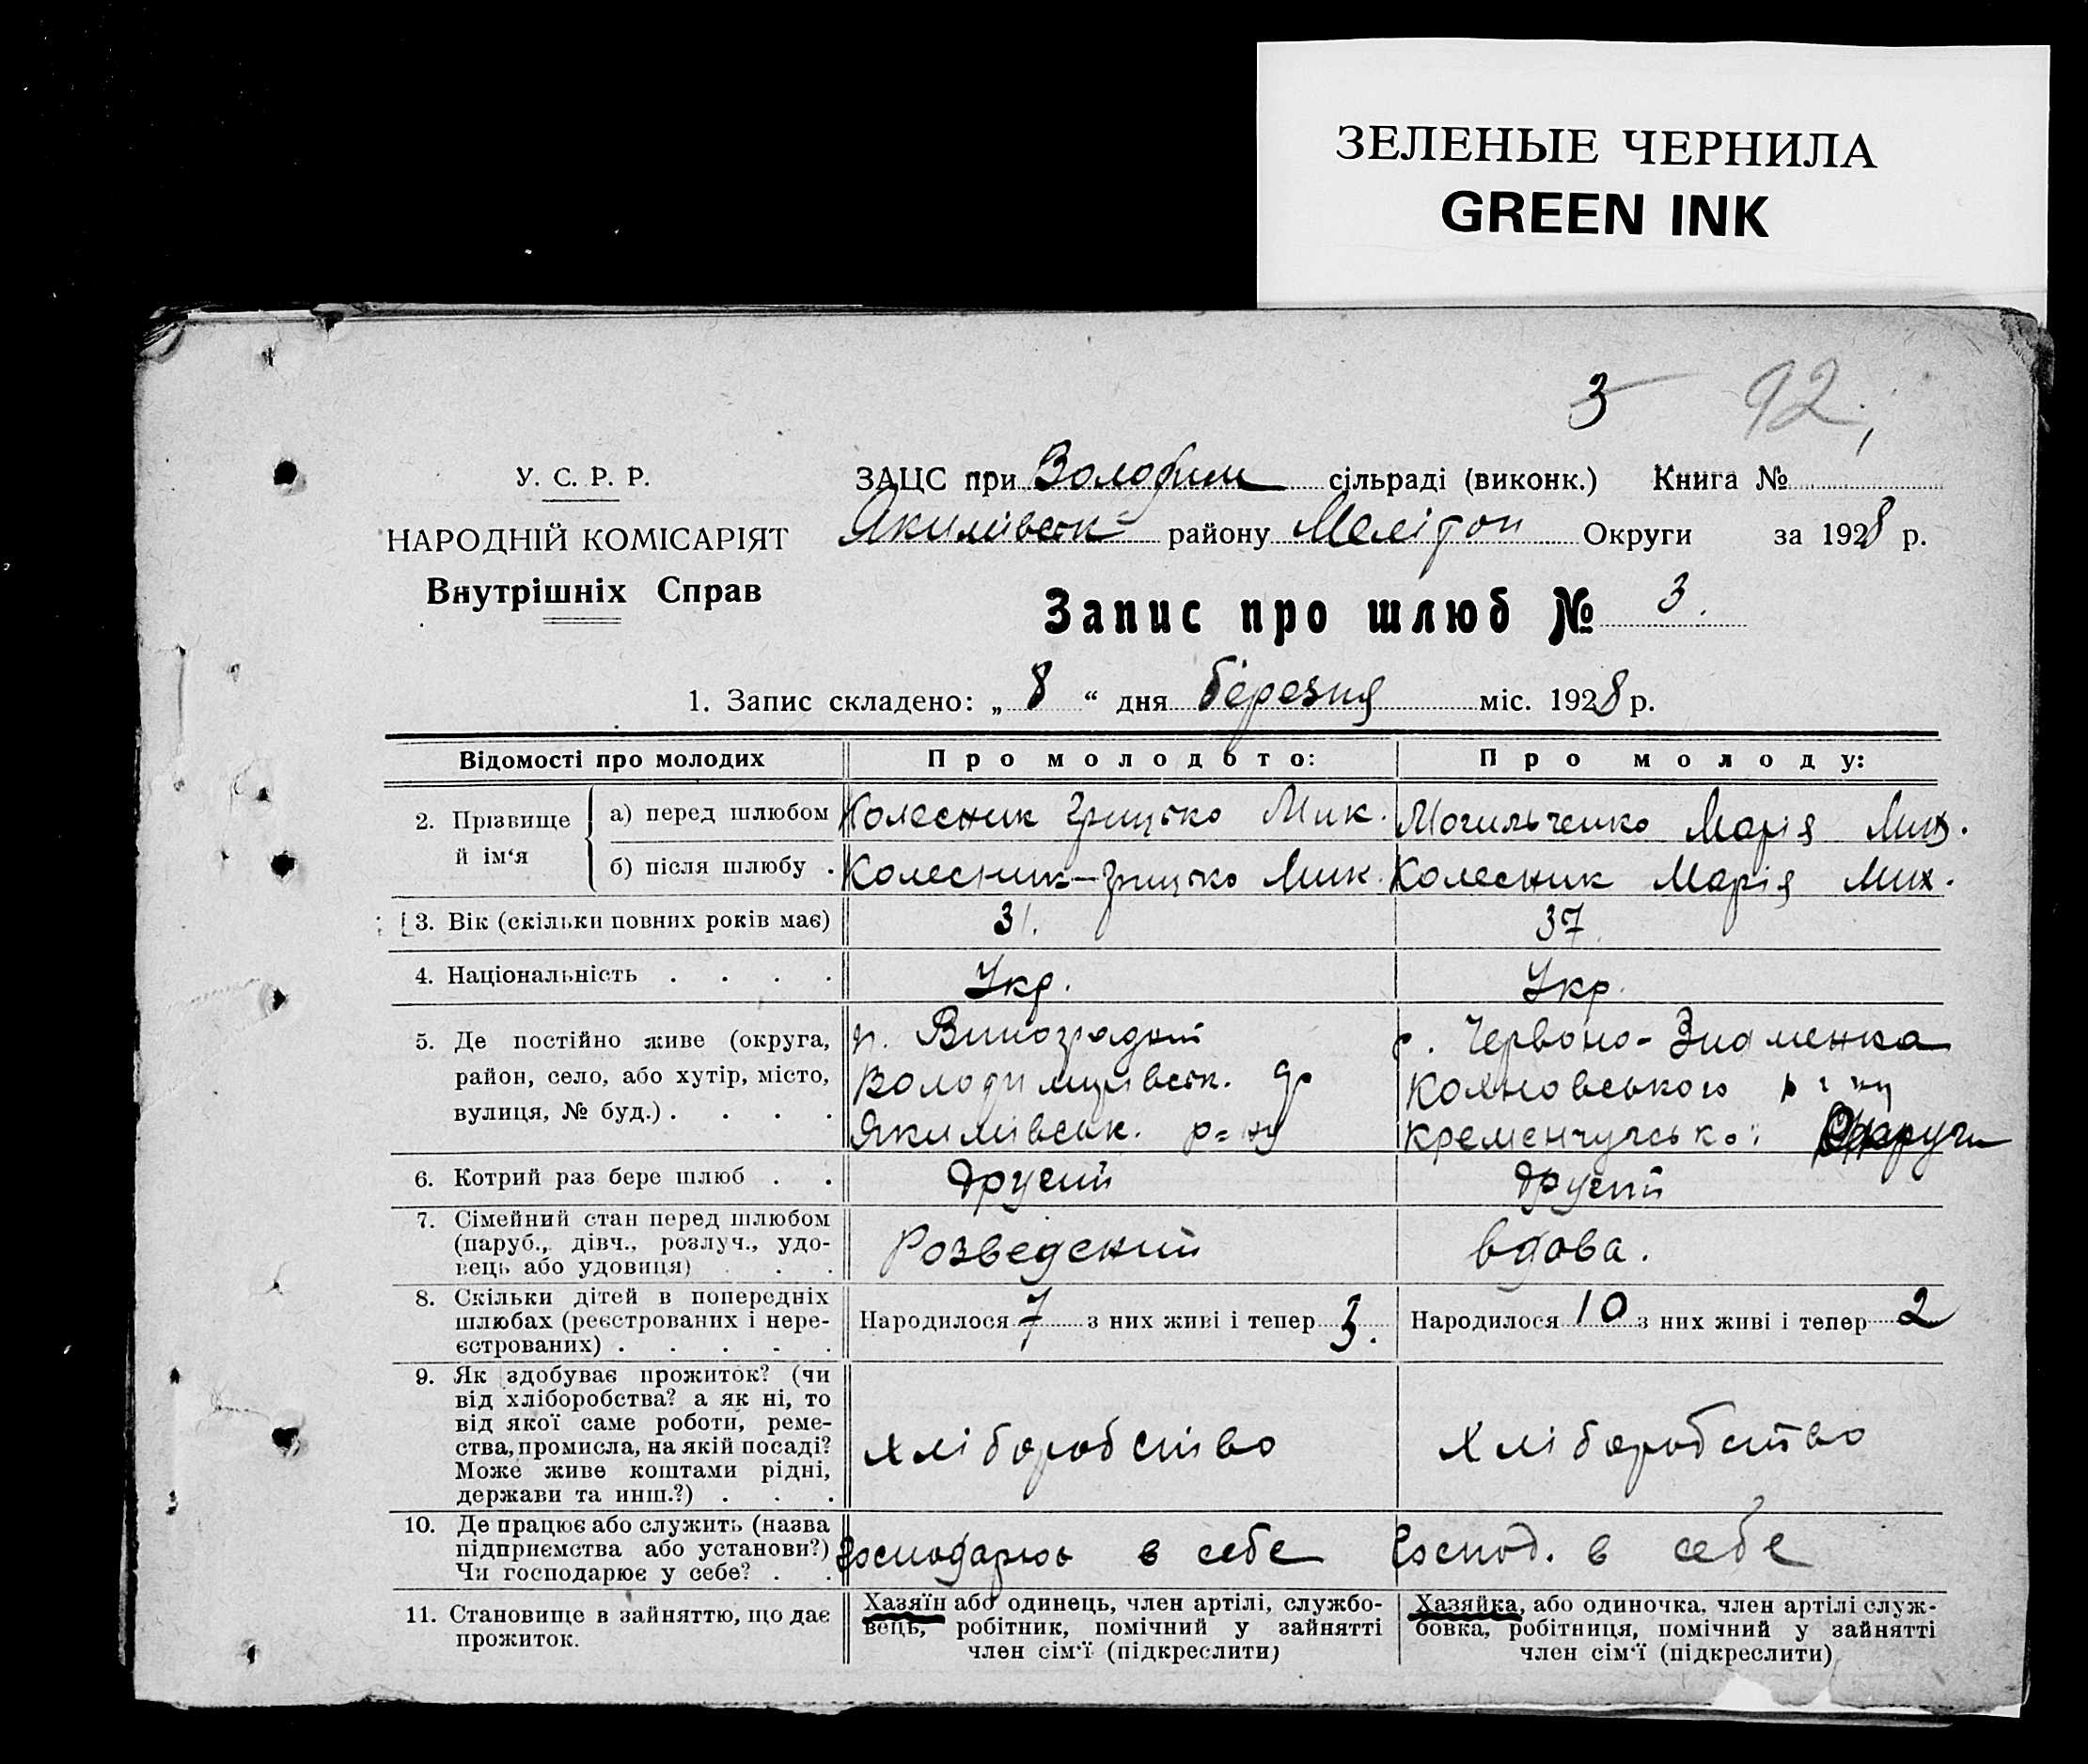 ЗЕЛЕНЫЕ ЧЕРНИЛА
GREEN INK
3 92
У. С. Р. Р.
НАРОДНІЙ КОМІСАРІЯТ
Внутрішніх Справ
ЗАЦС при Володим сільраді (виконк.) Книга №
Якимівськ району Мелітоп Округи за 1928 р.
Запис про шлюб № 3.
1. Запис складено: „ 8 “ дня березня міс. 1928 р.
Відомості про молодих
Про молодого:
Про молоду:
2. Прізвище й ім‘я
а) перед шлюбом
Колесник Грицько Мик.
Могильченко Марія Мих.
б) після шлюбу .
Колесник-Грицько Мик.
Колесник Марія Мих.
3. Вік (скільки повних років має)
31.
37
4. Національність . . . .
Укр.
Укр.
5. Де постійно живе (округа,
район, село, або хутір, місто,
вулиця, № буд.) . . . .
Виноградний
Володимирівськ.
Якимівськ. р-ну
Червоно-Знаменка
Кременчугської Округи
6. Котрий раз бере шлюб . .
Другий
Другий
7. Сімейний стан перед шлюбом
(паруб., дівч., розлуч., удо-
вець або удовиця) . . .
Розведений
вдова.
8. Скільки дітей в попередніх
шлюбах (реєстрованих і нере-
єстрованих) . . . . .
Народилося 7 з них живі і тепер 3.
Народилося 10 з них живі і тепер 2
9. Як здобуває прожиток? (чи
від хліборобства? а як ні, то
від якої саме роботи, реме-
ства, промисла, на якій посаді?
Може живе коштами рідні,
держави та инш.?) . . .
хліборобство
Хліборобство
10. Де працює або служить (назва
підприємства або установи?)
Чи господарює у себе? . .
Господарює в себе
Господ. в себе
11. Становище в зайняттю, що дає
прожиток.
Хазяїн або одинець, член артілі, службо-
вець, робітник, помічний у зайнятті
член сім‘ї (підкреслити)
Хазяйка, або одиночка, член артілі служ-
бовка, робітниця, помічний у зайнятті
член сім‘ї (підкреслити)